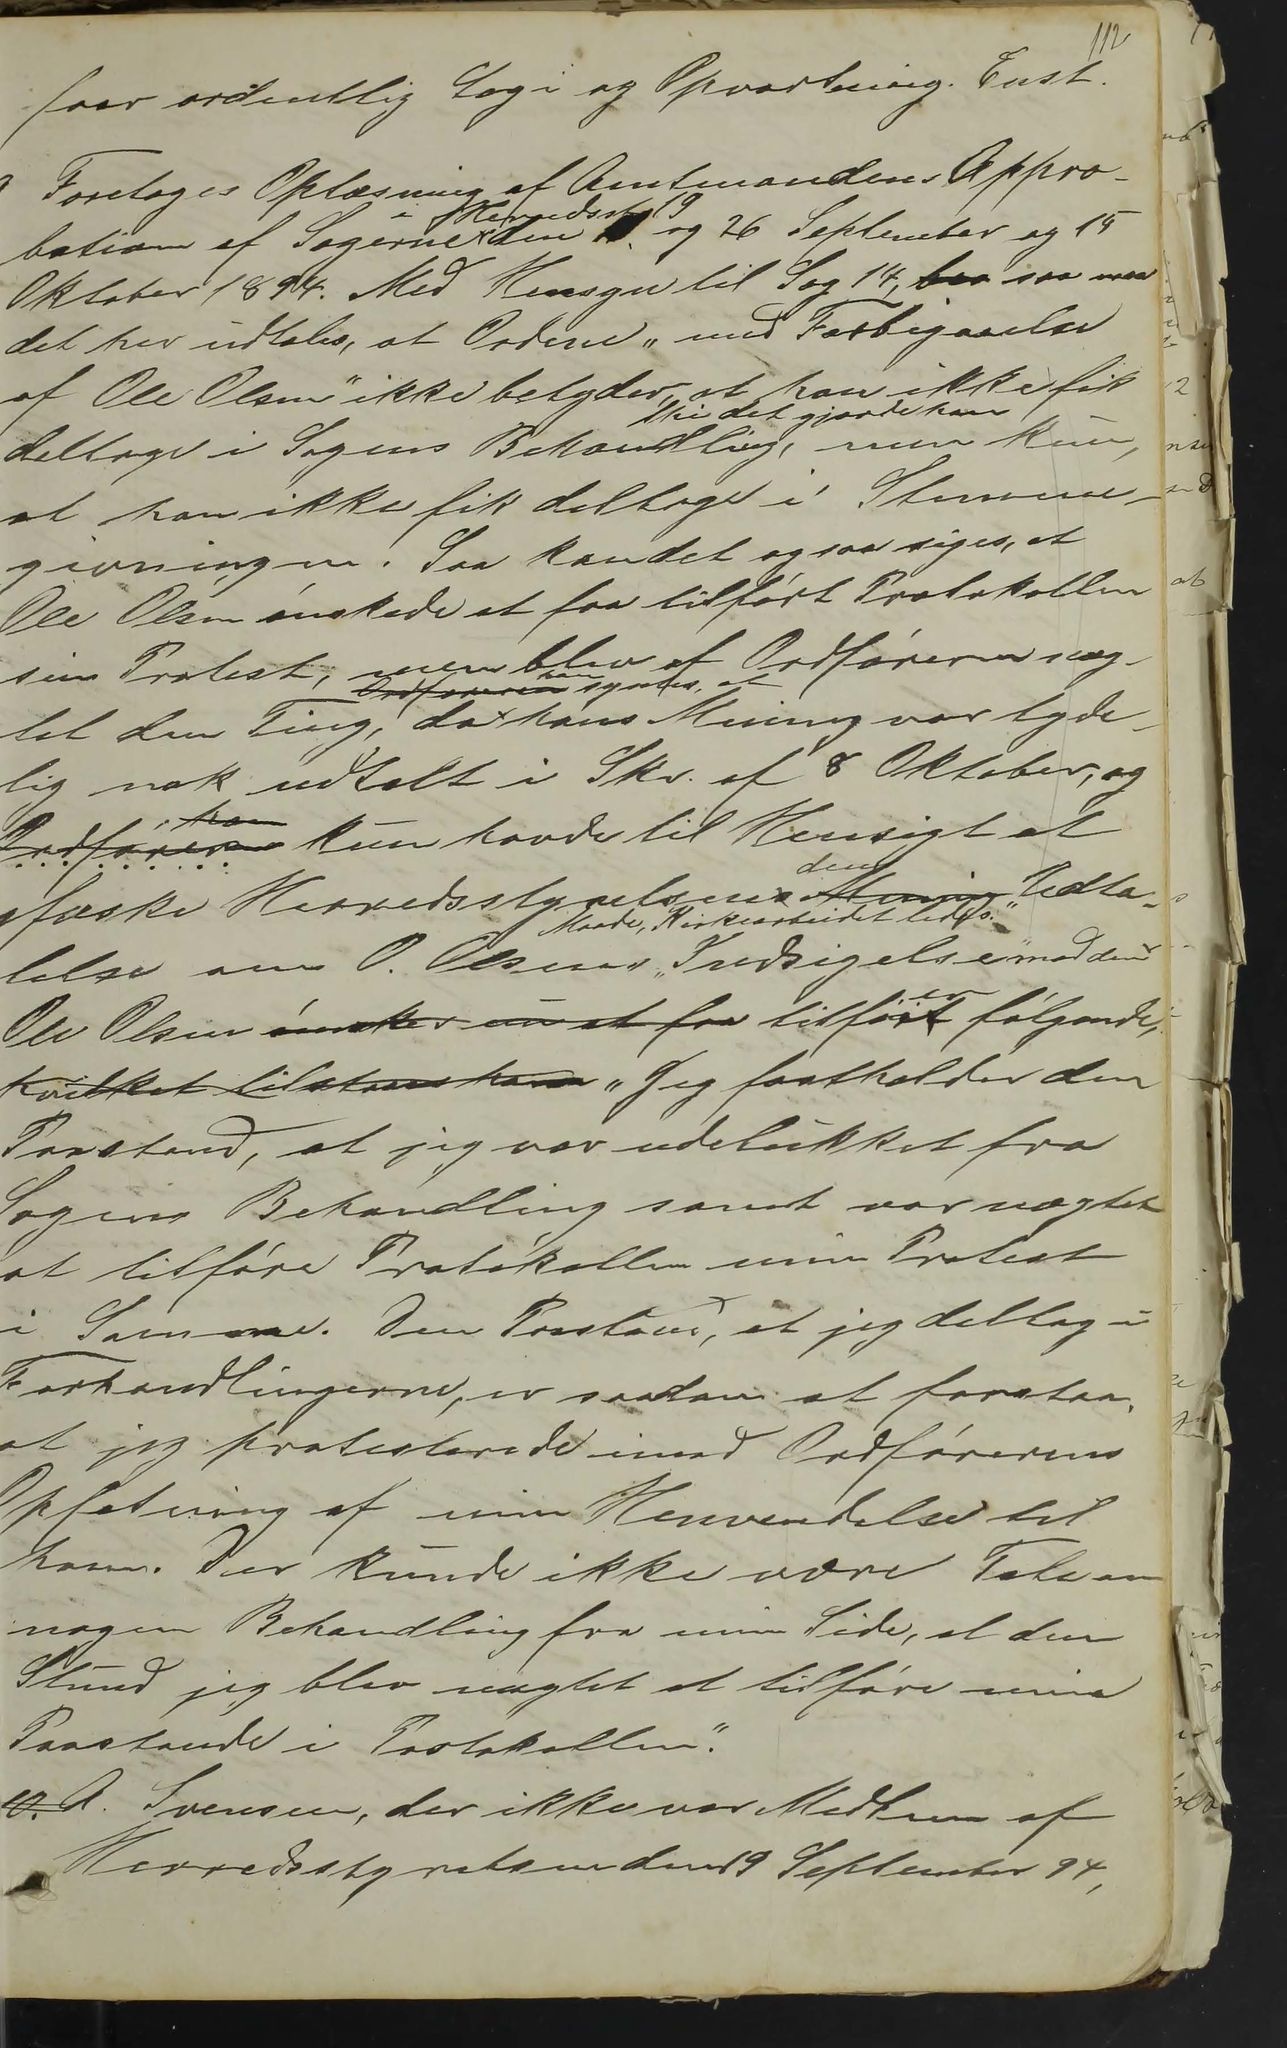 112
faar ordentlig Logi og Opvartning. Enst.
Foretoges Oplæsning af Amtmandens Appro-
i Herredsst. 19
bation af Sagerne den og 26 September og 15
Oktober 1894. Med Hensyn til Sag 14, bør saa maa
det her udtales, at Ordene „med Forbigaaelse
af Ole Olsen" ikke betyder, at han ikke fik
thi det gjorde han
deltage i Sagens Behandling, men kun,
at han ikke fik deltage i Stemme-
givningen. Saa kan det ogsaa siges, at
Ole Olsen ønskede at faa tilført Protokollen
sin Protest, men blev af Ordføreren næg-
Ordføreren han synes, at
tet den Ting, da hans Mening var tyde-
lig nok udtalt i Skr. af 8 Oktober, og
han
Ordføreren kun havde til Hensigt at
den
ønske Herredsstyrelsens Mening Udta-
Maade, Kirkearbeidet ledes.
lelse om O. Olsens „Indsigelse" mod den
er
Ole Olsen ønsker nu at faa tilført følgende,
hvilket tilstaaes ham „Jeg fastholder den
Paastand, at jeg var udelukket fra
Sagens Behandling samt var nægtet
at tilføre Protokollen min Protest
i Samme. Den Paastand, at jeg deltog i
Forhandlingerne, er saadan at forstaa,
at jeg protesterede imod Ordførerens
Opfatning af min Henvendelse til
ham. Der kunde ikke være Tale om
nogen Behandling fra min Side, al den
Stund jeg blev nægtet at tilføre mine
Paastande i Protokollen".
10. A. Svensen, der ikke var Medlem af
Herredsstyrelsen den 19 September 94,